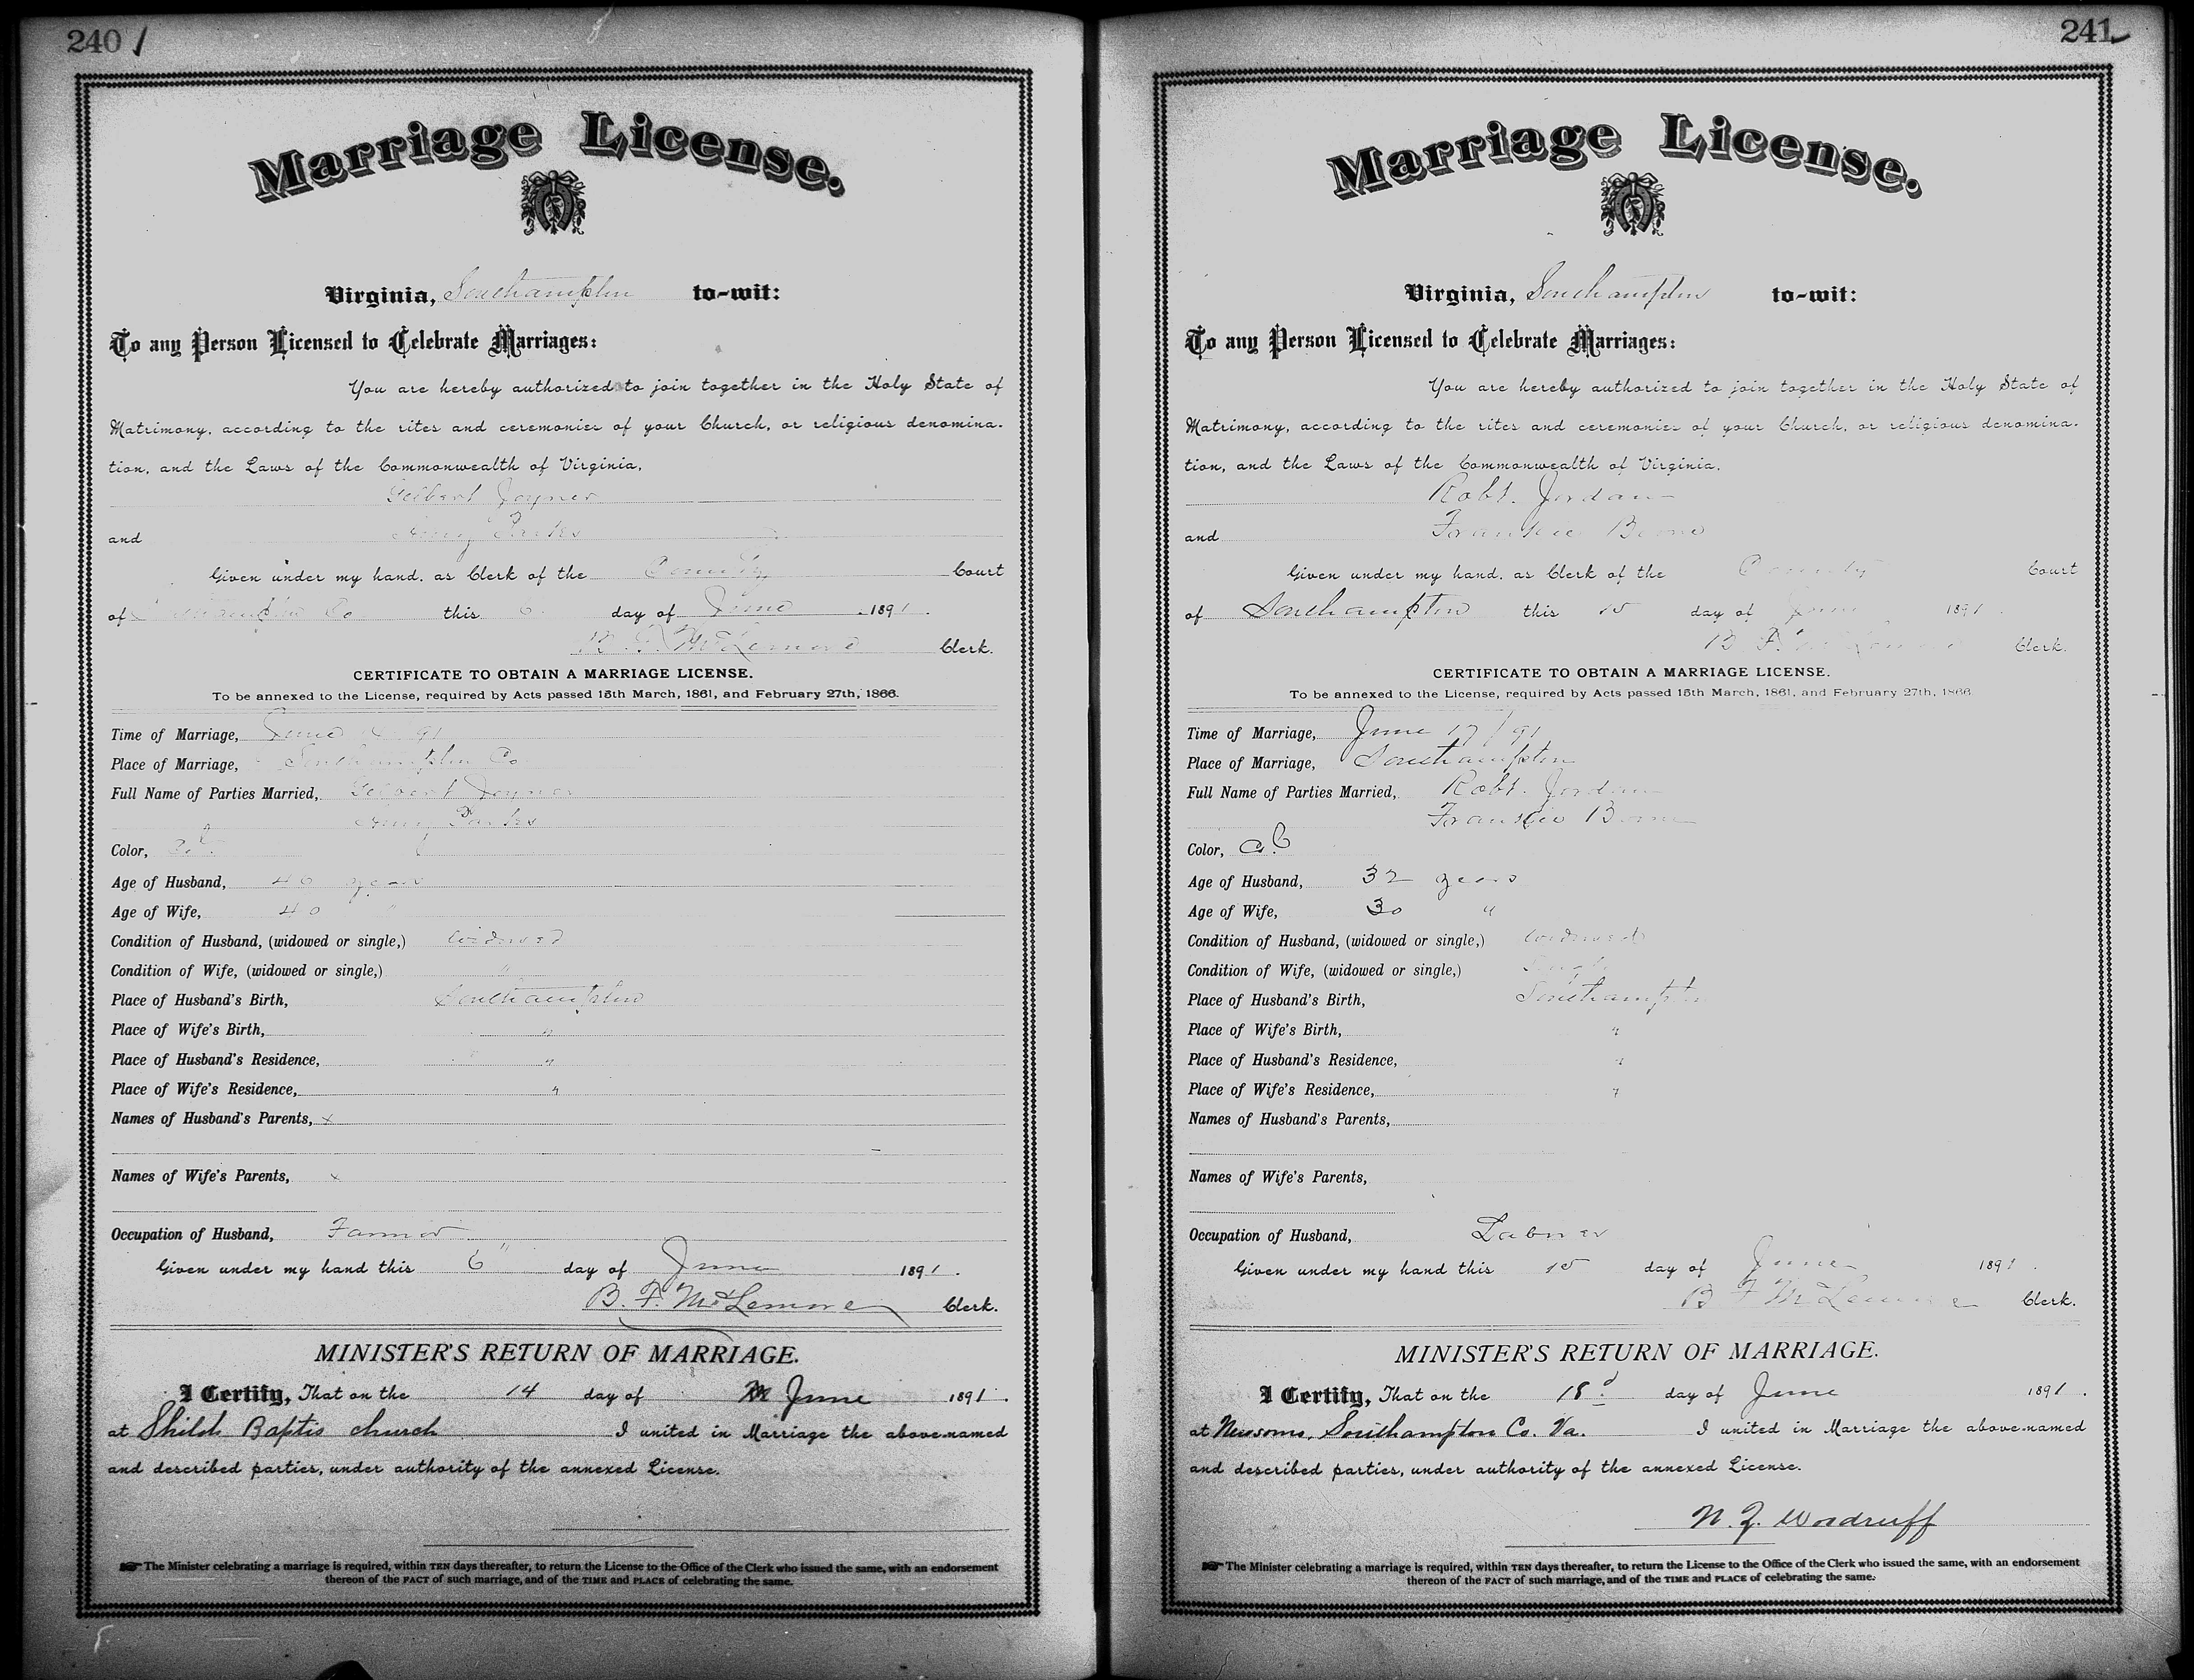 240
Marriage License.
Virginia, Southampton to-wit:
To any Person Licensed to Celebrate Marriages:
You are hereby authorized to join together in the Holy State of
Matrimony, according to the rites and ceremonies of your Church, or religious denomina-
tion, and the Laws of the Commonwealth of Virginia,
Gilbert Joyner
and Amy Parks
Given under my hand, as Clerk of the County Court
of Southampton Co this 6 day of June 1891.
B. F. McLemore Clerk.
CERTIFICATE TO OBTAIN A MARRIAGE LICENSE.
To be annexed to the License, required by Acts passed 15th March, 1861, and February 27th, 1866.
Time of Marriage, June 91
Place of Marriage, Southampton Co
Full Name of Parties Married, Gilbert Joyner
Amy Parks
Color, Col
Age of Husband, 40 years
Age of Wife, 40 "
Condition of Husband, (widowed or single,) widowed
Condition of Wife, (widowed or single,) "
Place of Husband's Birth, Southampton
Place of Wife's Birth, "
Place of Husband's Residence, "
Place of Wife's Residence, "
Names of Husband's Parents, x
Names of Wife's Parents, x
Occupation of Husband, Farmer
Given under my hand this 6" day of June 1891.
B. F. McLemore Clerk.
MINISTER'S RETURN OF MARRIAGE.
I Certify, That on the 14 day of June 1891.
at Shiloh Baptis church I united in Marriage the above-named
and described parties, under authority of the annexed License.
The Minister celebrating a marriage is required, within TEN days thereafter, to return the License to the Office of the Clerk who issued the same, with an endorsement
thereon of the FACT of such marriage, and of the TIME and PLACE of celebrating the same.
241
Marriage License.
Virginia, Southampton to-wit:
To any Person Licensed to Celebrate Marriages:
You are hereby authorized to join together in the Holy State of
Matrimony, according to the rites and ceremonies of your Church, or religious denomina-
tion, and the Laws of the Commonwealth of Virginia,
Robt. Jordan
and Frankie Boone
Given under my hand, as Clerk of the County Court
of Southampton this 15 day of June 1891
B. F. McLemore Clerk.
CERTIFICATE TO OBTAIN A MARRIAGE LICENSE.
To be annexed to the License, required by Acts passed 15th March, 1861, and February 27th, 1866
Time of Marriage, June 17/91
Place of Marriage, Southampton
Full Name of Parties Married, Robt. Jordan
Frankie Boone
Color, Col
Age of Husband, 32 years
Age of Wife, 30 "
Condition of Husband, (widowed or single,) widowed
Condition of Wife, (widowed or single,) Single
Place of Husband's Birth, Southampton
Place of Wife's Birth, "
Place of Husband's Residence, "
Place of Wife's Residence, "
Names of Husband's Parents,
Names of Wife's Parents,
Occupation of Husband, Laborer
Given under my hand this 15 day of June 1891.
B F McLemore Clerk.
MINISTER'S RETURN OF MARRIAGE.
I Certify, That on the 18d day of June 1891.
at Newsoms, Southampton Co. Va. I united in Marriage the above-named
and described parties, under authority of the annexed License.
N. Z. Woodruff
The Minister celebrating a marriage is required, within TEN days thereafter, to return the License to the Office of the Clerk who issued the same, with an endorsement
thereon of the FACT of such marriage, and of the TIME and PLACE of celebrating the same.